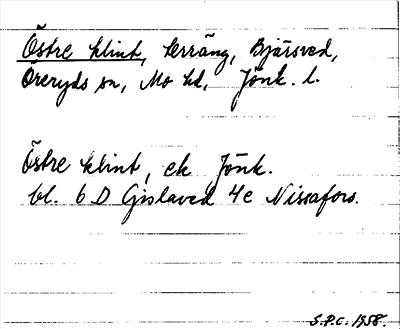 Östre klint, terräng, Bjärsved,
Öreryds sn, Mo hd, Jönk. l.
Östre klint, ek Jönk.
bl. 6 D Gislaved 4 e Nissafors.
S.P.C. 1958.